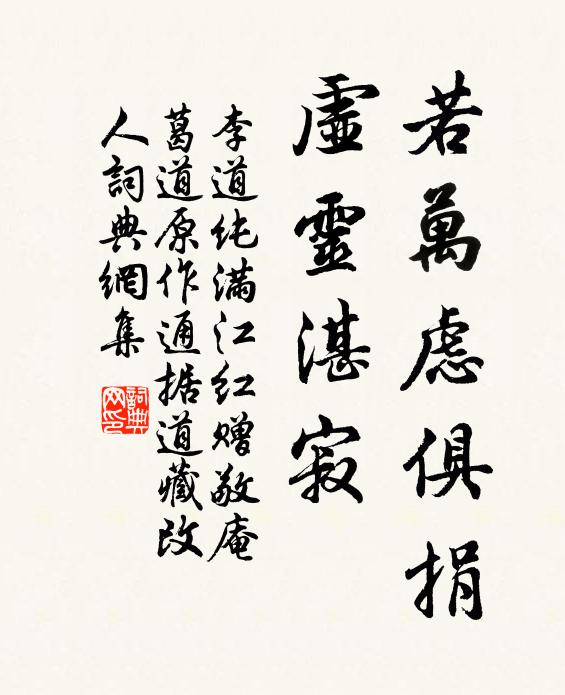 若萬慮俱捐
虛靈湛寂
李道纯满江红赠敬庵
葛道原作通据道藏改
人詞典網集
詞典
网印